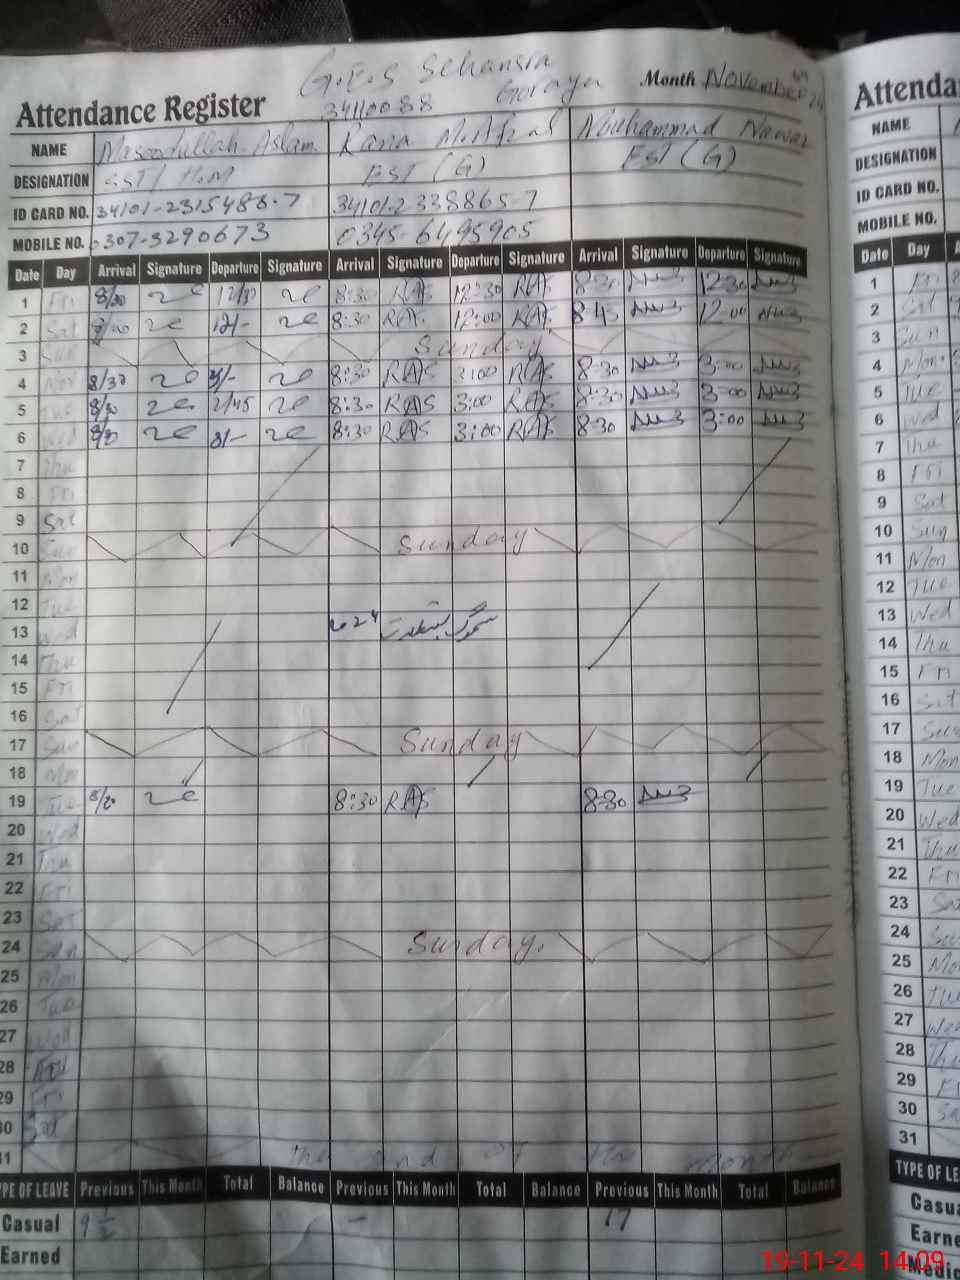 G.E.S Sehansra
Goraya
34110088
Month November
Attendance Register
NAME Masoodullah Aslam Rana Muhammad Nawaz
DESIGNATION SST/H.M EST (G) EST (G)
ID CARD NO. 34101-2315488-7 34101-2338865-7
MOBILE NO. 0307-3290673 0345-6495905
Date Day Arrival Signature Departure Signature Arrival Signature Departure Signature Arrival Signature Departure Signature
1 Fri 8/30 12/30 8:30 RAS 12:30 RAS 8-30 12-30
2 Sat 12/- 8:30 RAS 12:00 RAS 8 45 12 00
3 Sun Sunday
4 Mon 8/30 3/- 8:30 RAS 3:00 RAS 8-30 3-00
5 Tue 8/30 2/45 8:30 RAS 3:00 RAS 8-30 3-00
6 Wed 8/30 8:30 RAS 3:00 RAS 8-30 3:00
7 Thu
8 Fri
9 Sat
10 Sun Sunday
11 Mon
12 Tue
13 Wed
14 Thu
15 Fri
16 Sat
17 Sun Sunday
18 Mon
19 Tue 8:30 RAS 8-30
20 Wed
21 Thu
22 Fri
23 Sat
24 Sun Sunday.
25 Mon
26 Tue
27 Wed
28 Thu
29 Fri
30 Sat
31 The end of the month
TYPE OF LEAVE Previous This Month Total Balance Previous This Month Total Balance Previous This Month Total Balance
Casual 9 1/2 - 17
Earned
Attenda
NAME
DESIGNATION
ID CARD NO.
MOBILE NO.
Date Day A
1 Fri
2 Sat
3 Sun
4 Mon
5 Tue
6 Wed
7 Thu
8 Fri
9 Sat
10 Sun
11 Mon
12 Tue
13 Wed
14 Thu
15 Fri
16 Sat
17 Sun
18 Mon
19 Tue
20 Wed
21 Thu
22 Fri
23 Sa
24 Su
25 Mo
26 Tu
27 We
28 Thu
29 F
30 Sa
31
TYPE OF LE
Casua
Earne
Medic
19-11-24 14:09